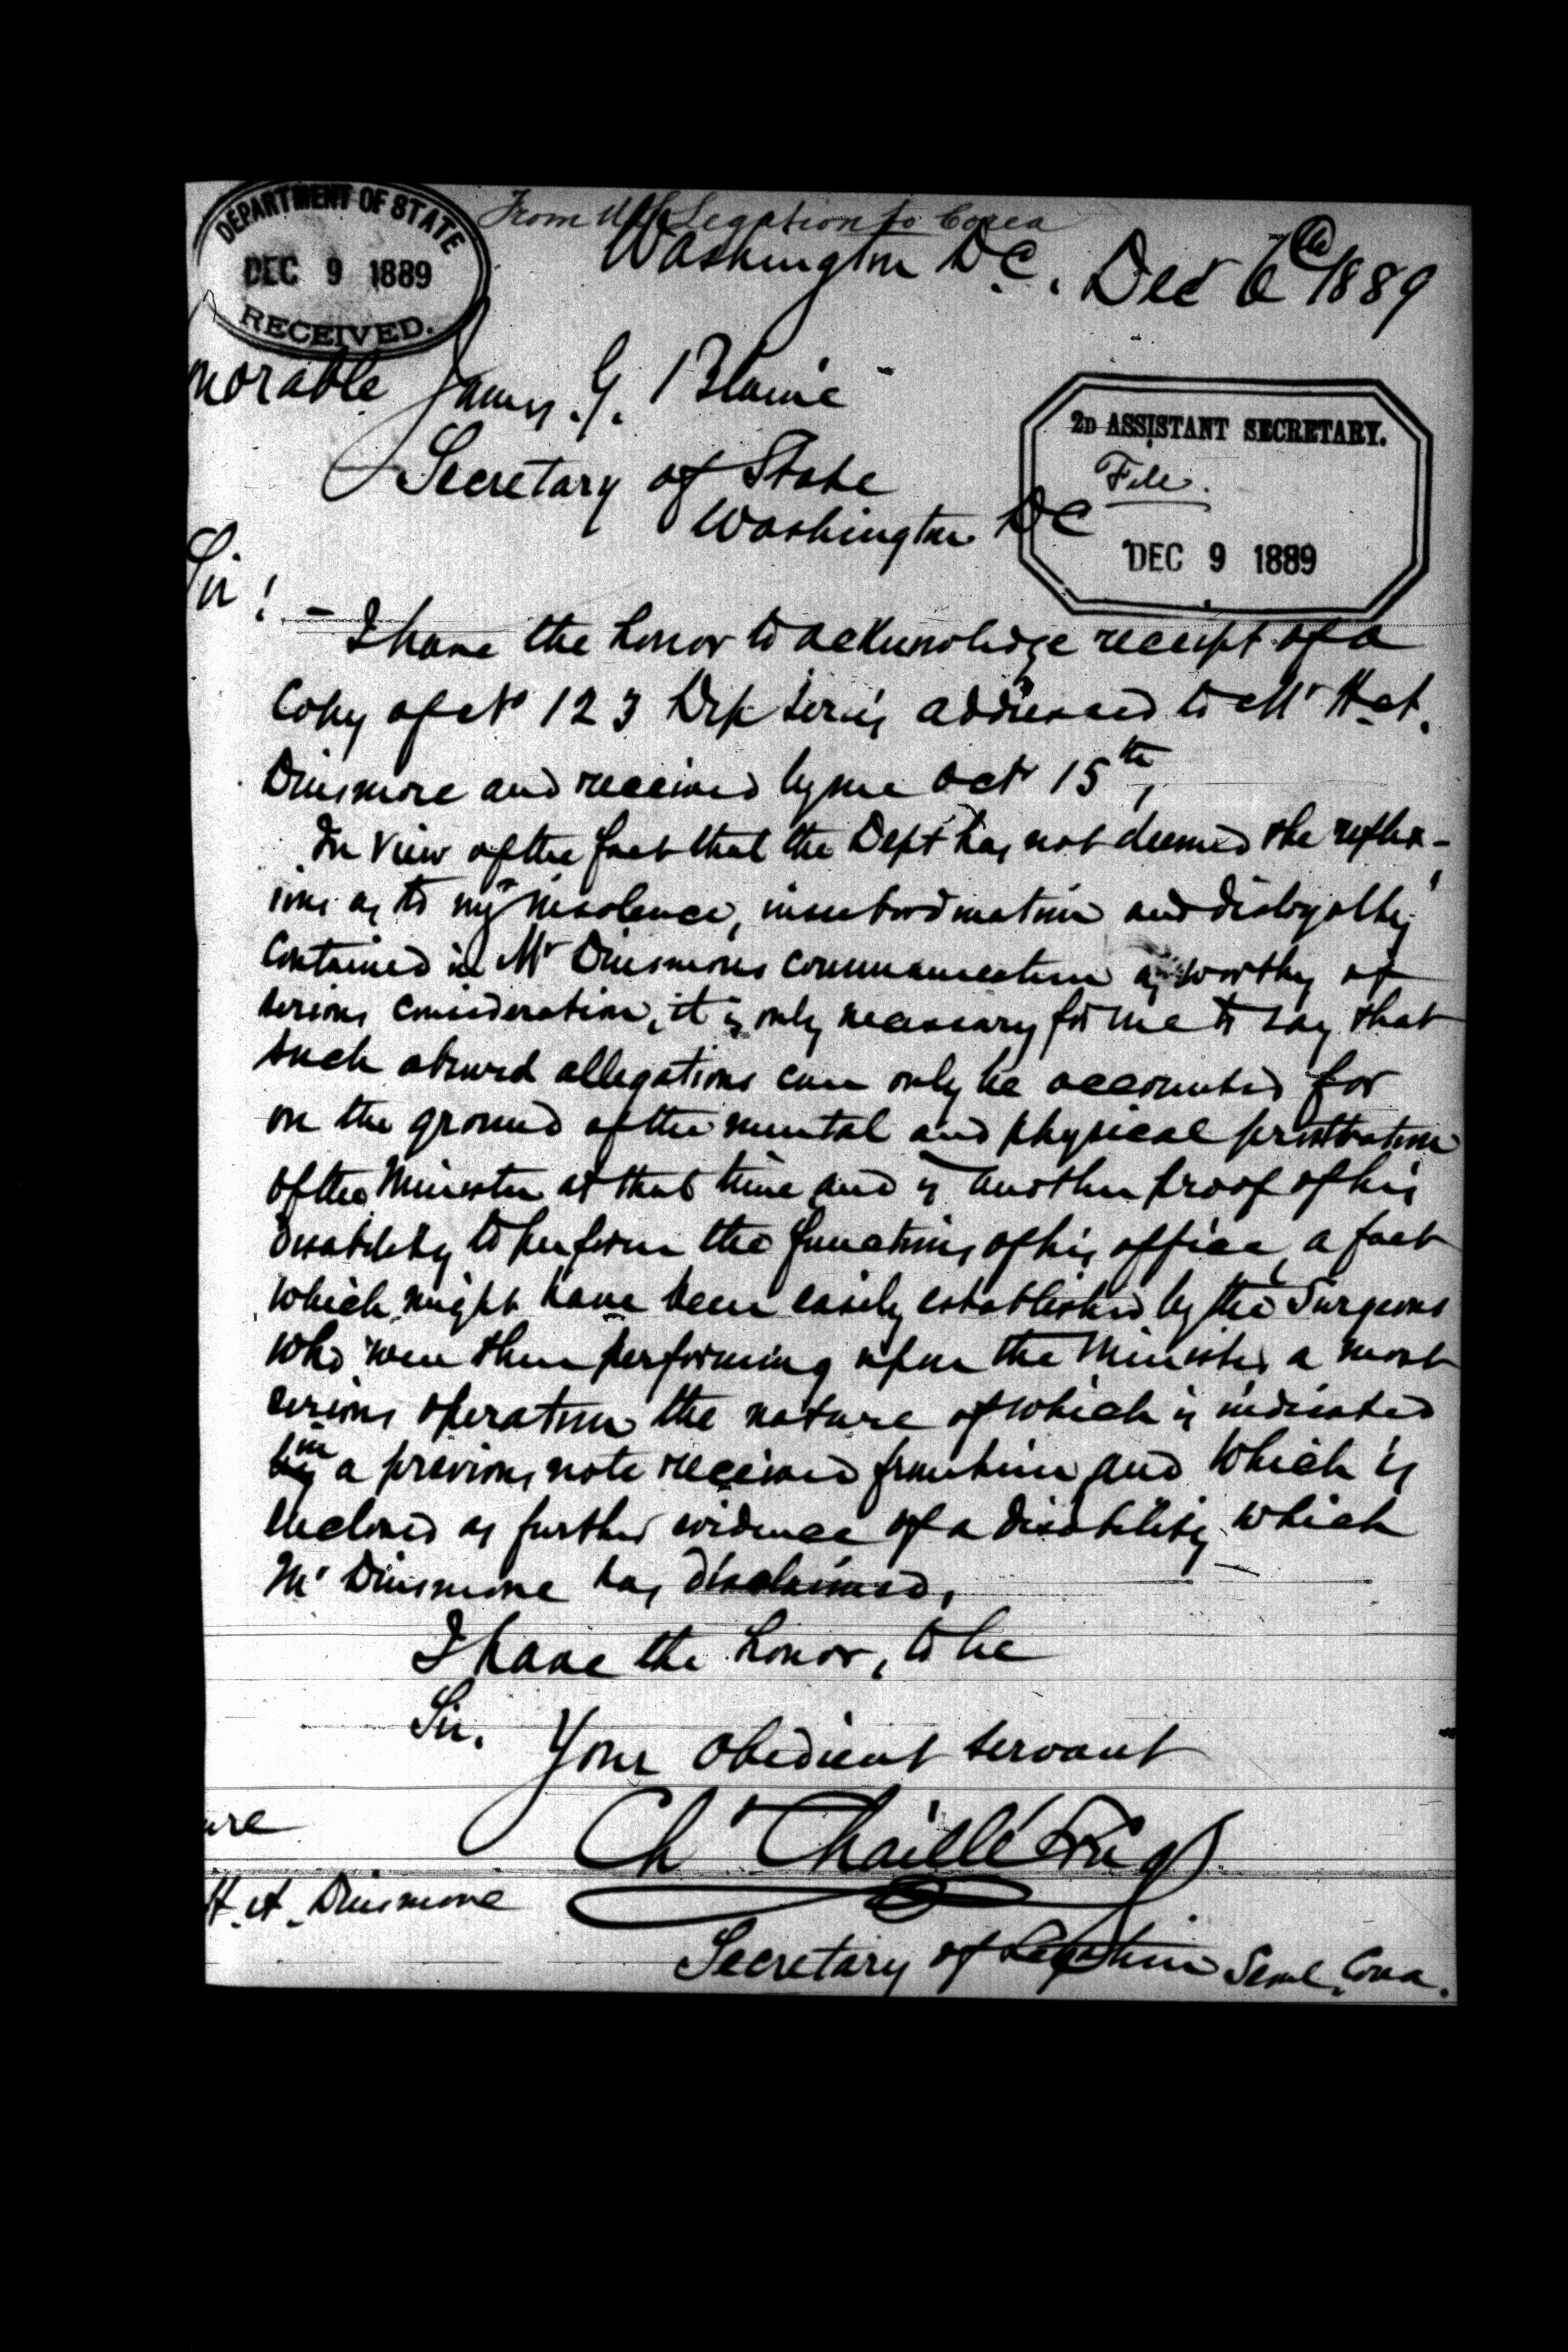 DEPARTMENT OF STATE
DEC 9 1889
RECEIVED.
From U.S. Legation to Corea
Washington D.C. Dec 6th 1889
norable James G. Blaine
Secretary of State
Washington DC
2D ASSISTANT SECRETARY.
File.
DEC 9 1889
Sir! -
I have the honor to acknowledge receipt of a
Copy of No 123 Dip Series addressed to Mr H. A.
Dinsmore and received by me Oct 15th,
In View of the fact that the Dept has not deemed the reflex-
ions as to my "insolence, insubordination and disloyalty"
Contained in Mr Dinsmores communication as worthy of
serious consideration, it is only necessary for me to say that
such absurd allegations can only be accounted for
on the ground of the mental and physical prostration
of the Minister at that time and is another proof of his
disability to perform the functions of his office, a fact
which might have been easily established by the Surgeons
who were then performing upon the Minister a most
serious operation the nature of which is indicated
by in a previous note received from him and which is
enclosed as further evidence of a disability which
Mr Dinsmore has disclaimed.
I have the honor, to be
Sir.
Your obedient servant
Ch Chaillé Long
ure
H. A. Dinsmore
Secretary of Legation Seoul, Corea.